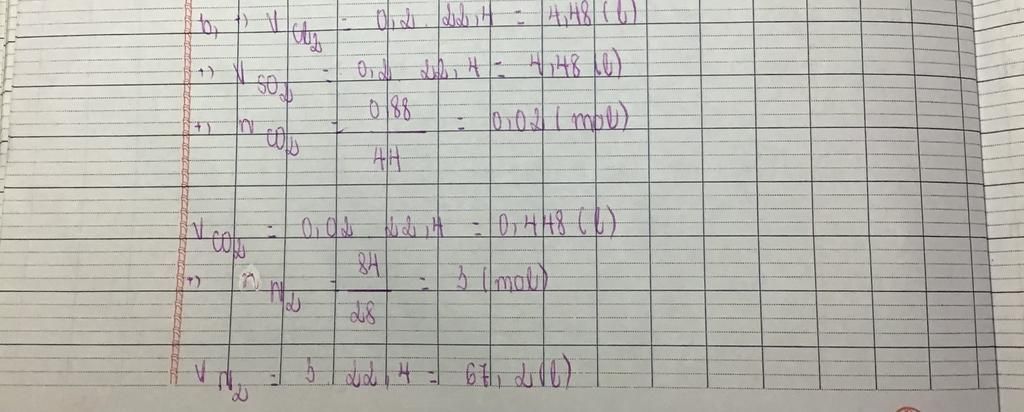 b, +) V Cl2 = 0,2 . 22,4 = 4,48 (l)
+) V SO2 = 0,2 22,4 = 4,48 (l)
+) n CO2 = 0,88 / 44 = 0,02 (mol)
V CO2 = 0,02 22,4 = 0,448 (l)
+) n N2 = 84 / 28 = 3 (mol)
V N2 = 3 22,4 = 67,2 (l)